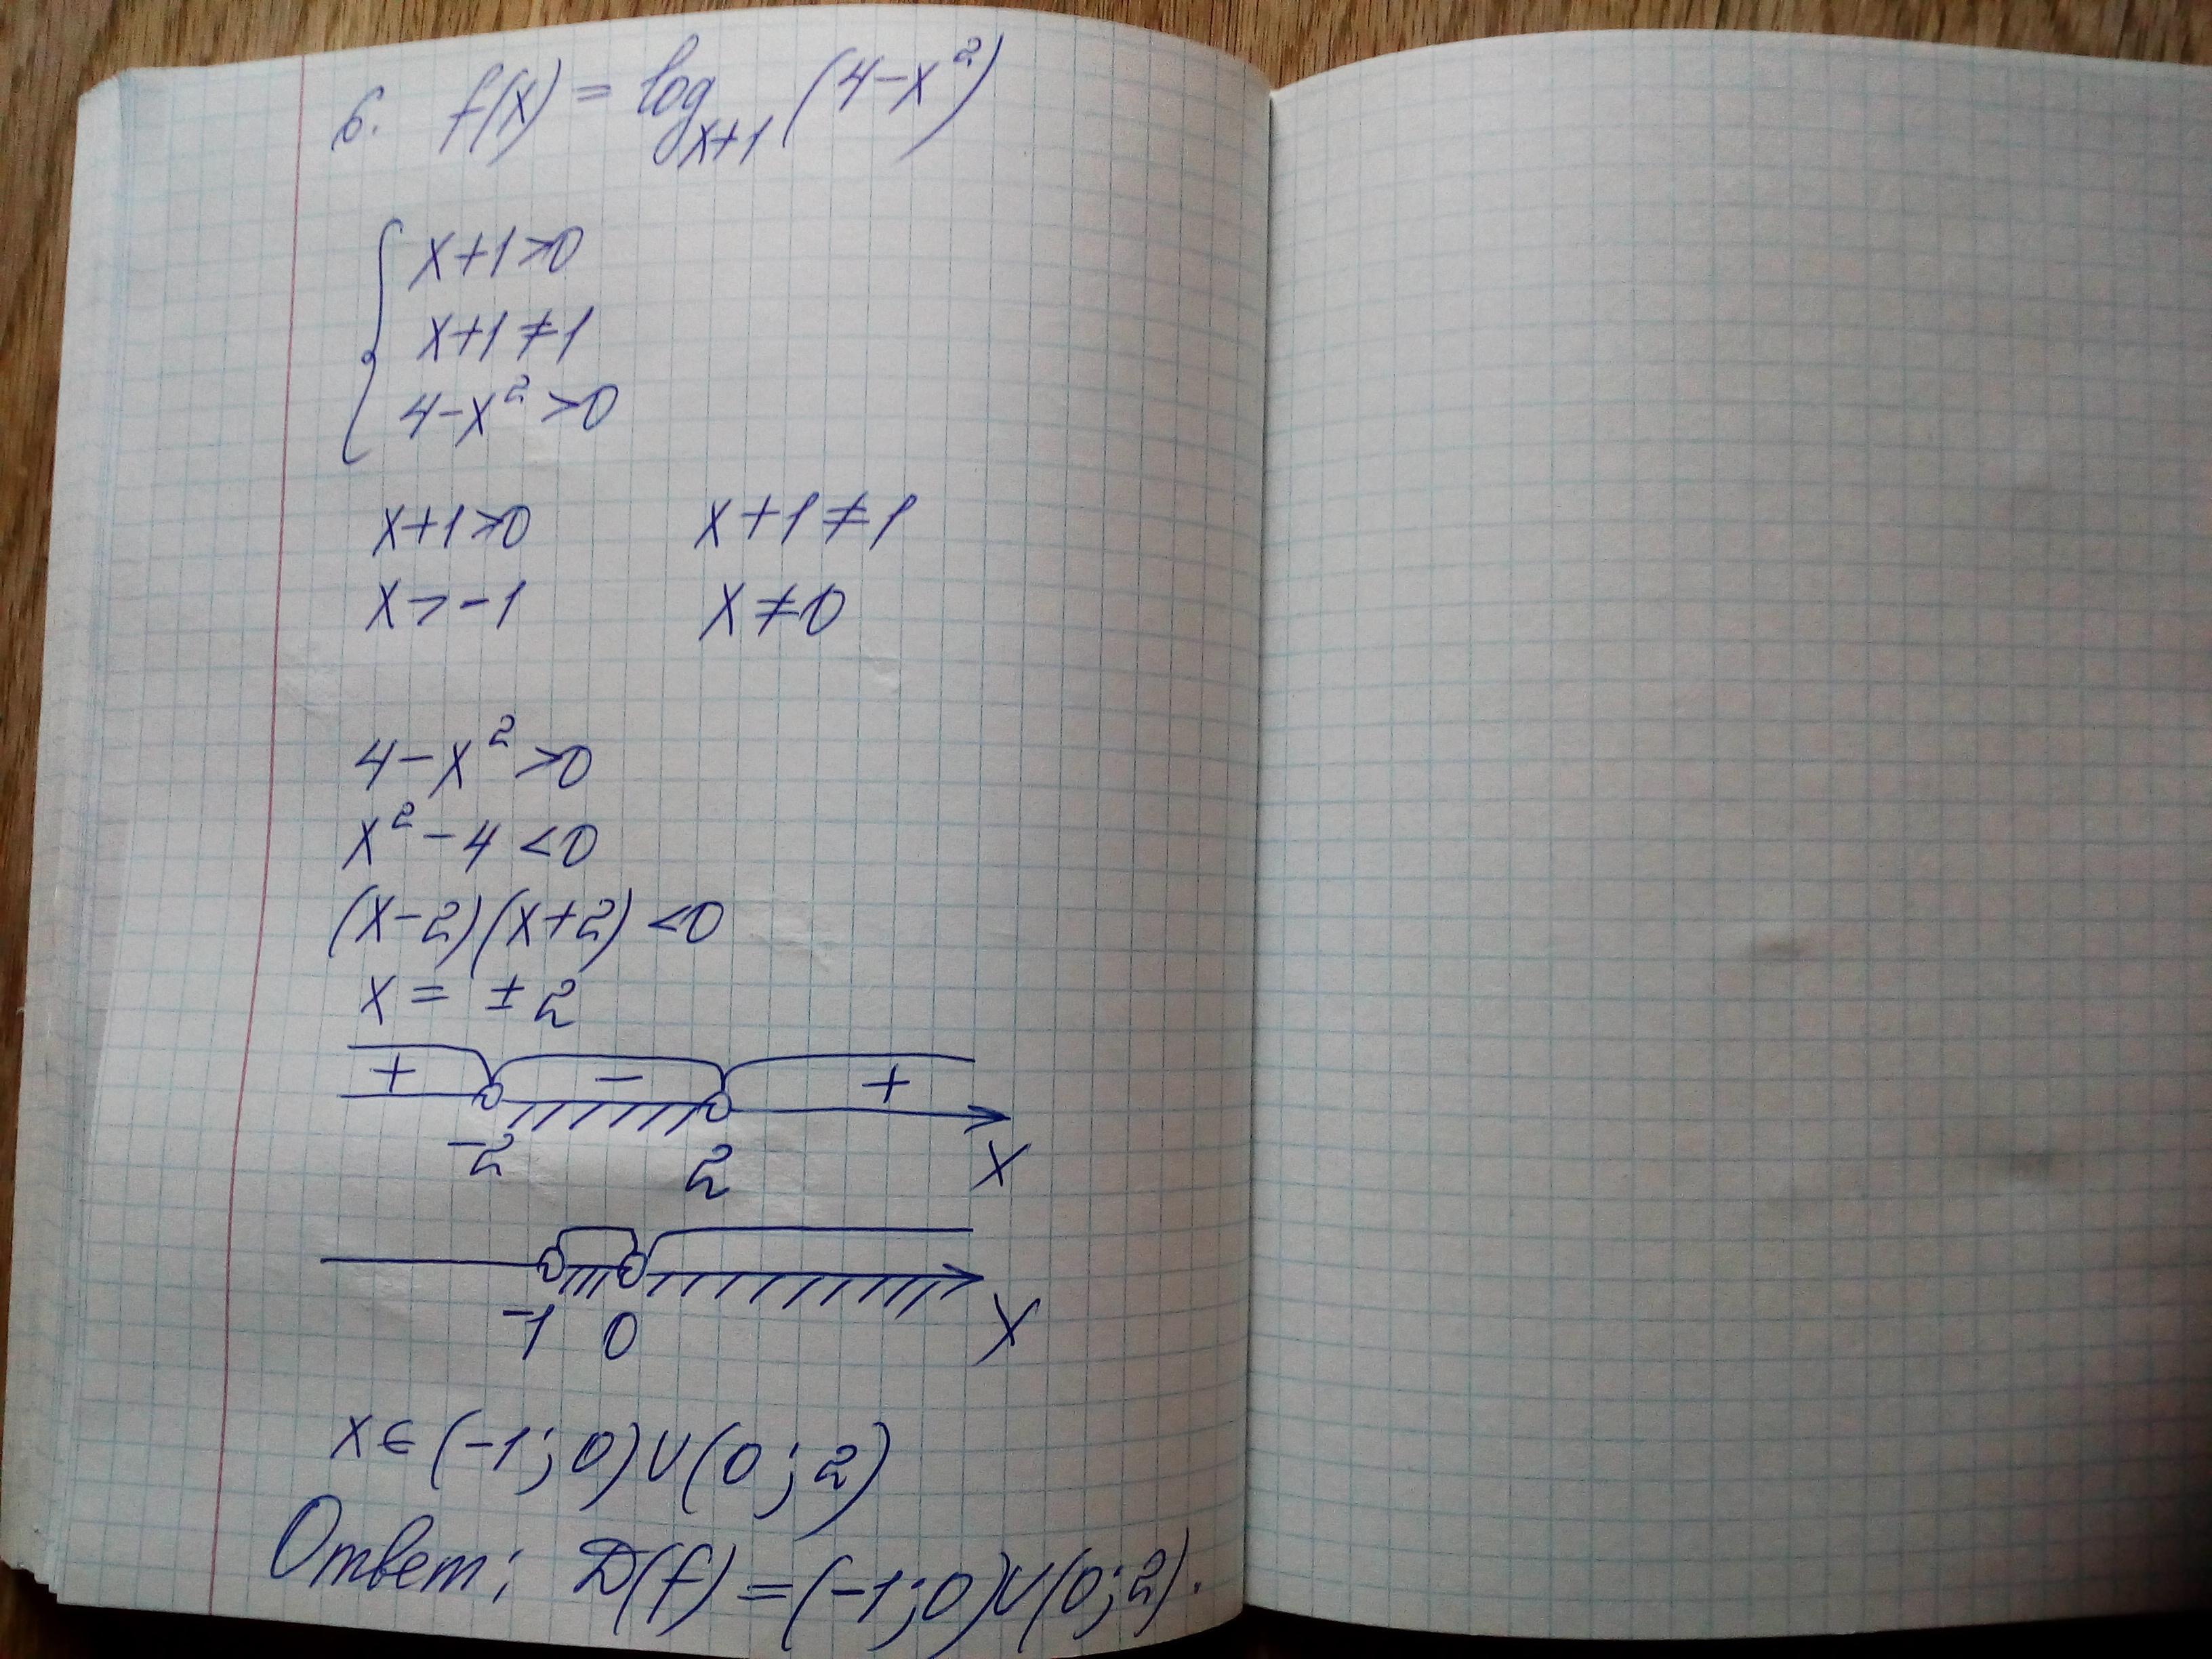 6. f(x) = log_{x+1} (4-x²)
x+1>0
x+1≠1
4-x²>0
x+1>0 x+1≠1
x>-1 x≠0
4-x²>0
x²-4<0
(x-2)(x+2)<0
x = ±2
+ - +
-2 2 x
-1 0 x
x∈(-1;0)∪(0;2)
Ответ: D(f)=(-1;0)∪(0;2).